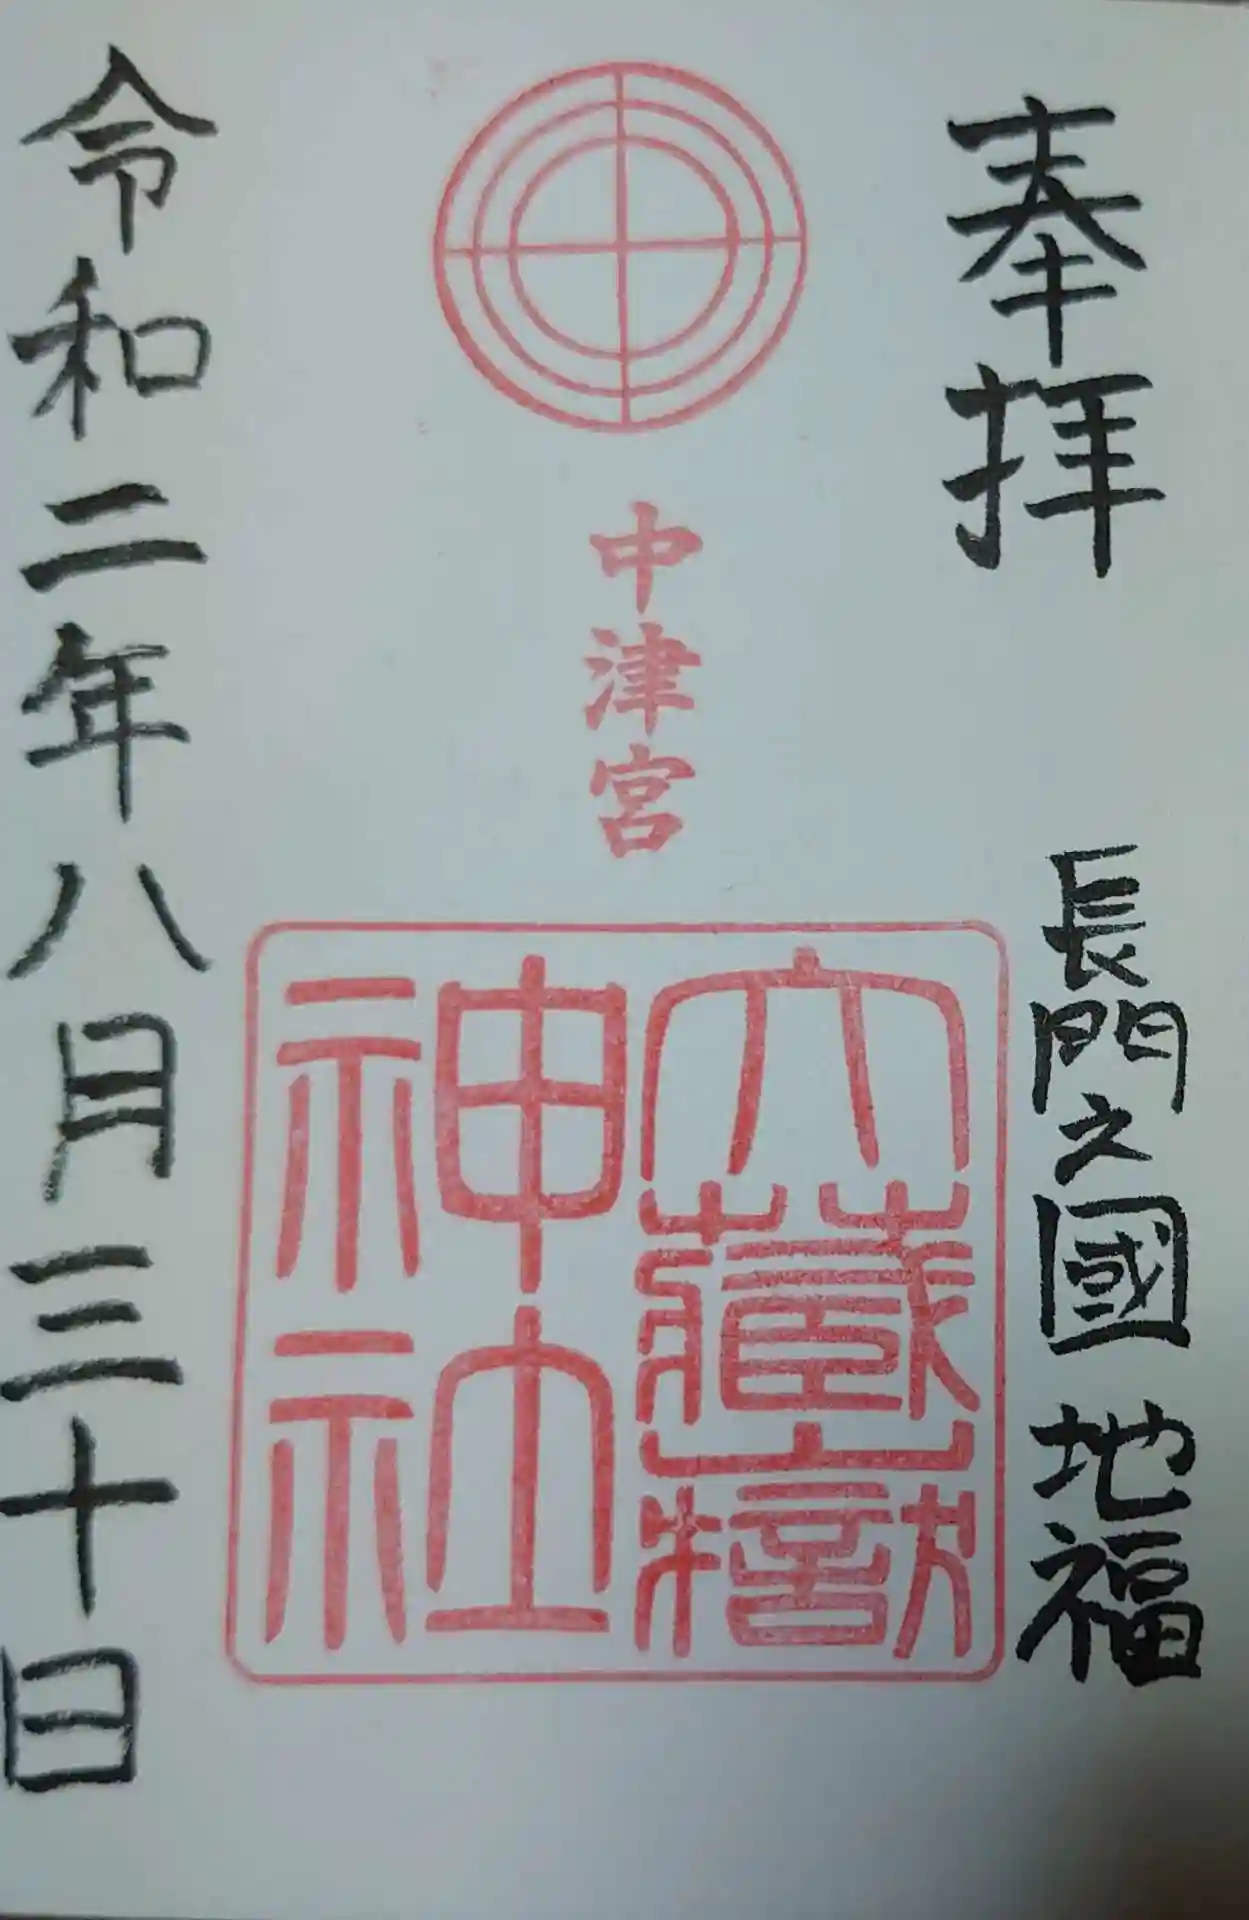 奉拝
長門之國 地福
中津宮
大藏嶽
神社
令和二年八月三十日